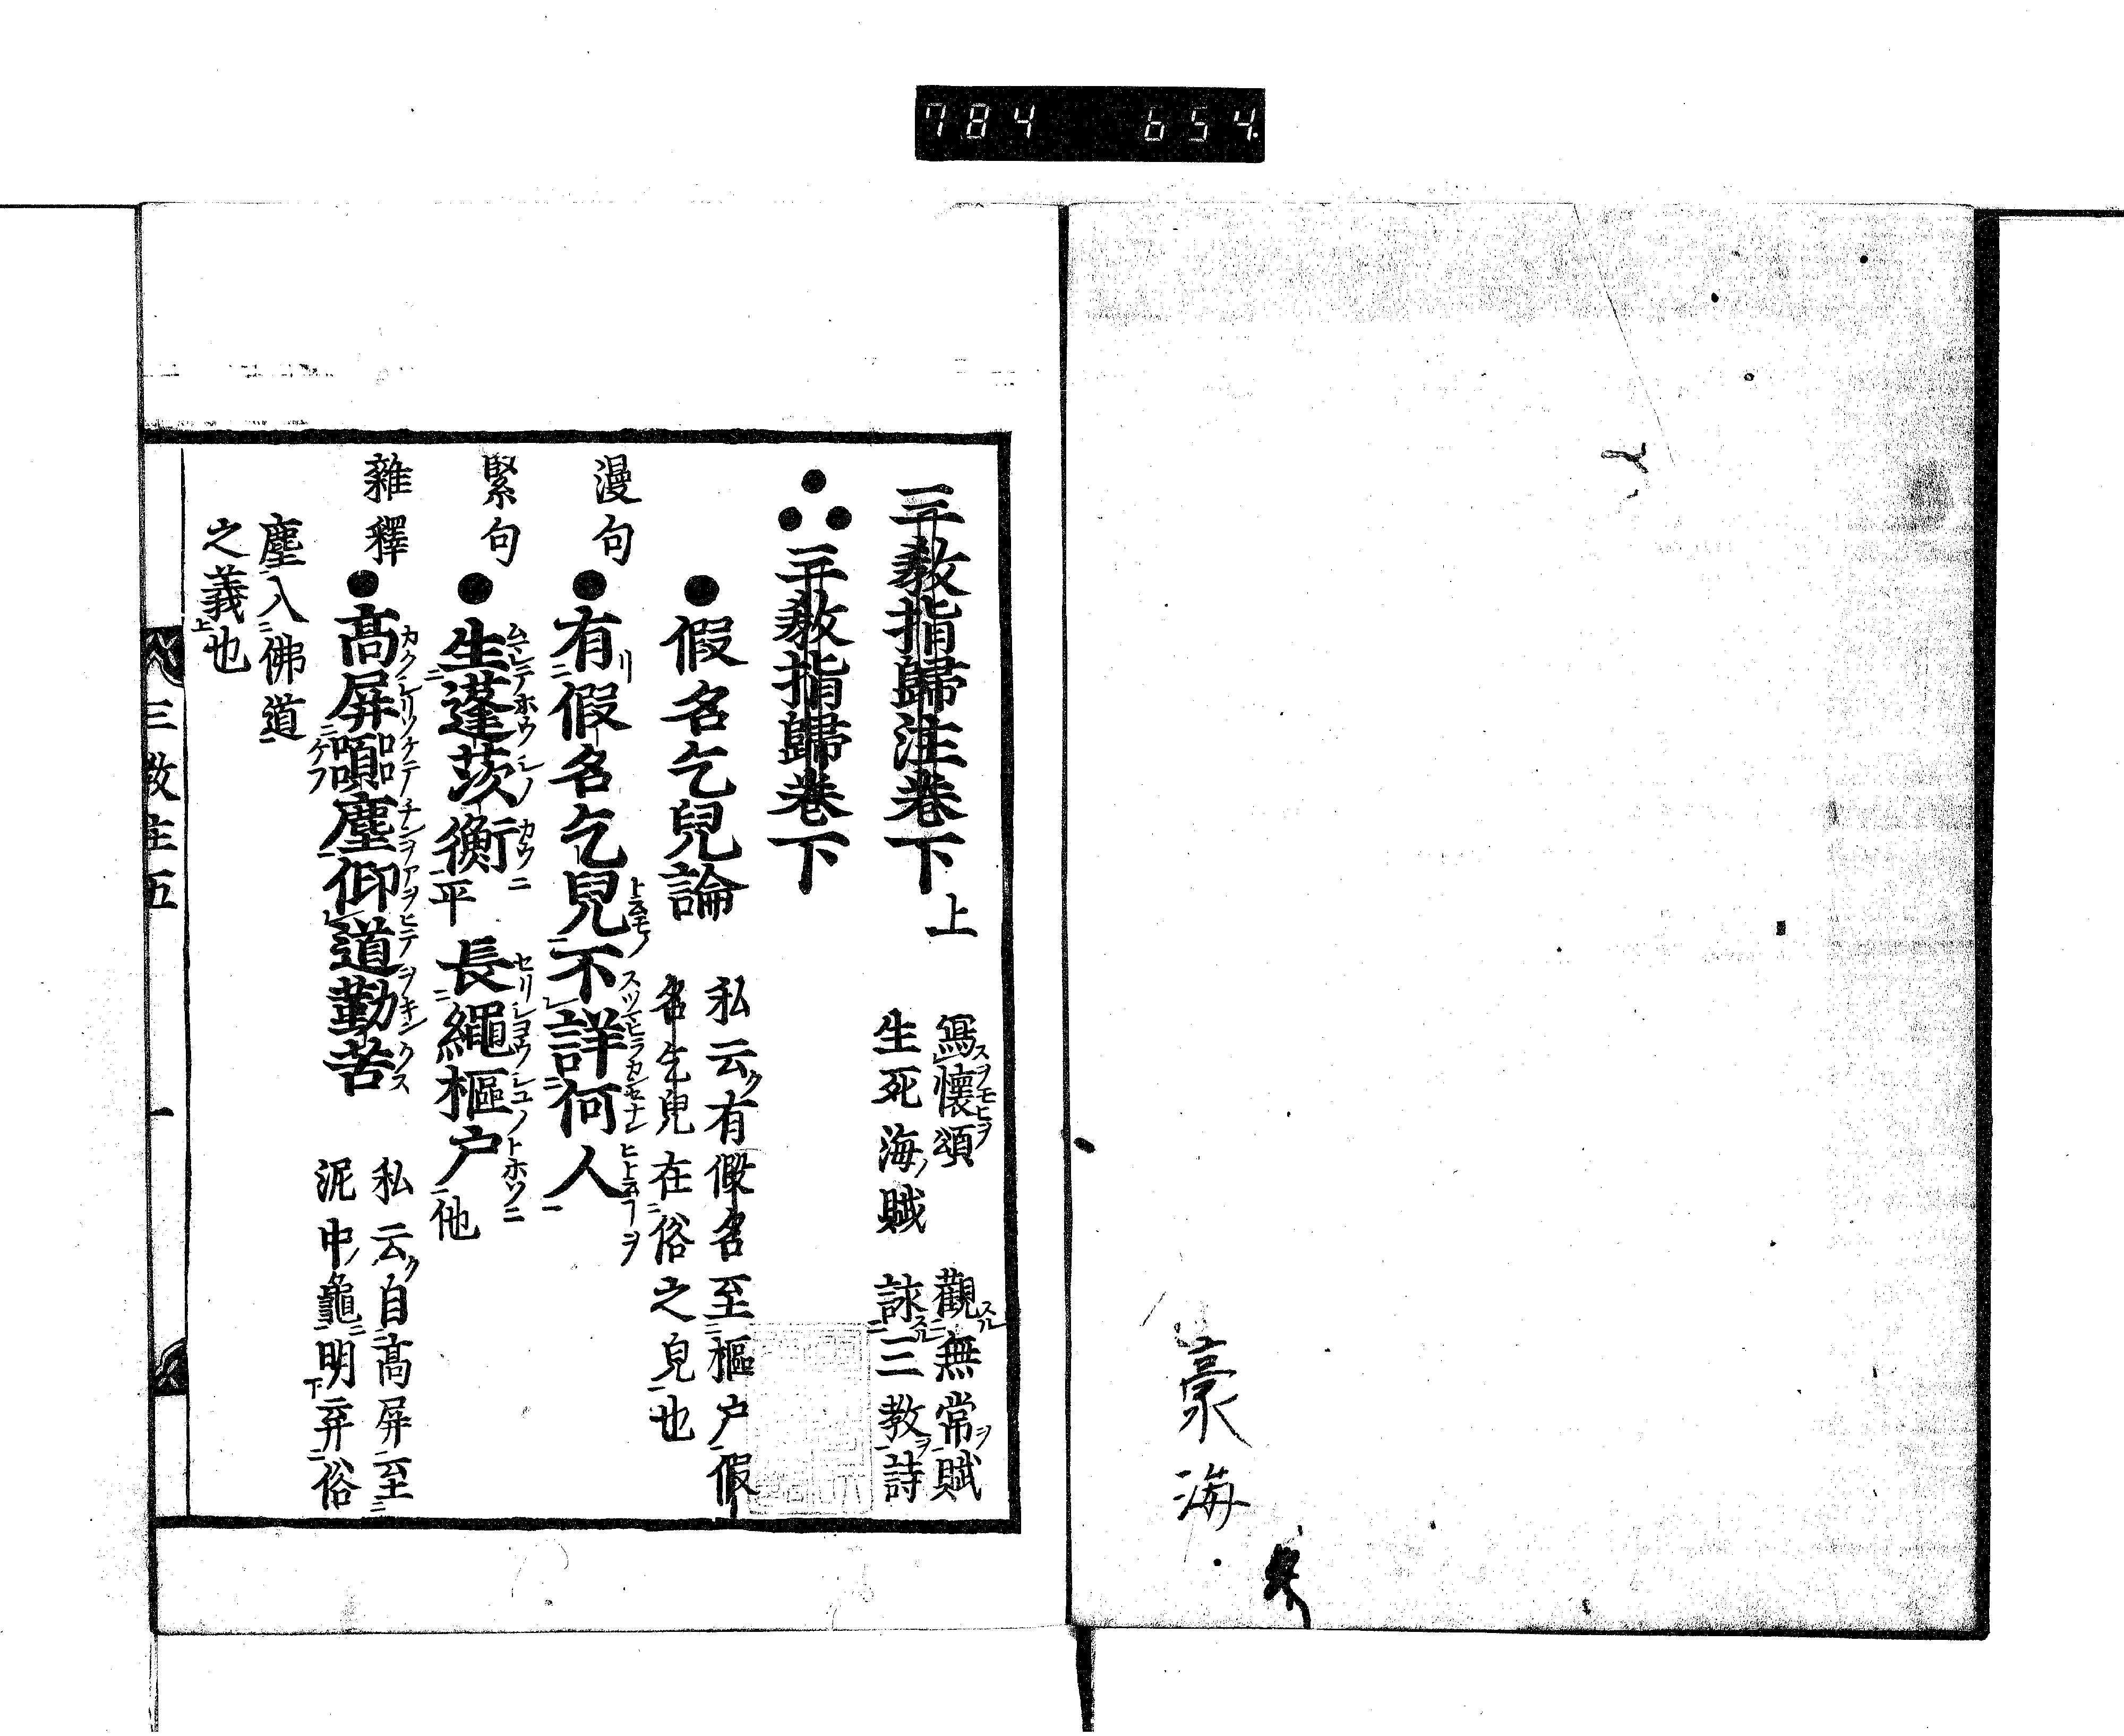 784 654
豪海
三教指歸注卷下上
寫懷頌 觀無常賦
生死海賦 詠三教詩
三教指歸卷下
假名乞兒論
私云有假名至樞户假
名乞兒在俗之皃也
漫句
有假名乞兒不詳何人
緊句
生蓬茨衡平 長繩樞户他
雜釋
髙屏嚚塵仰道勤苦
私云自髙屏至
泥中龜明弃俗
塵入佛道
之義也
三教注五 一